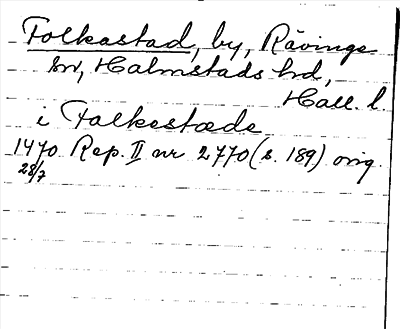 Folkastad, by, Rävinge
sn, Halmstads hd,
Hall. l.
i Falkestæde
1470 Rep. II nr 2770 (s. 189) orig.
28/7